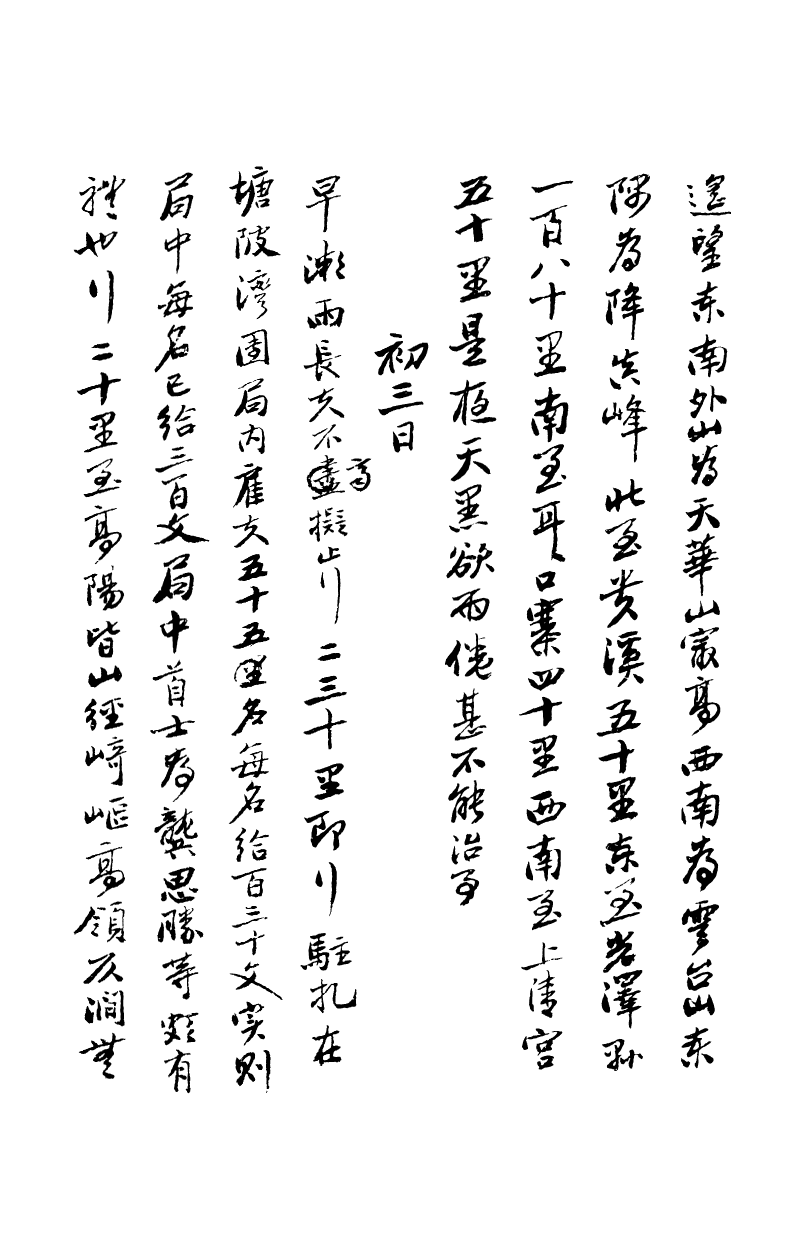 遙望东南外山為天華山最高西南為雲台山东
隅為降真峰北至贵溪五十里东至若澤縣
一百八十里南至耳口寨四十里西南至上清宫
五十里是夜天黑欲雨倦甚不能治事
初三日
早漱雨長夫不齊擬止行二三十里即行駐扎在
塘陂灣團局内雇夫五十五名每名给百三十文实则
局中每名已给三百文局中首士為龔思勝等頗有
禮也行二十里至高陽皆山徑崎嶇高領仄澗無